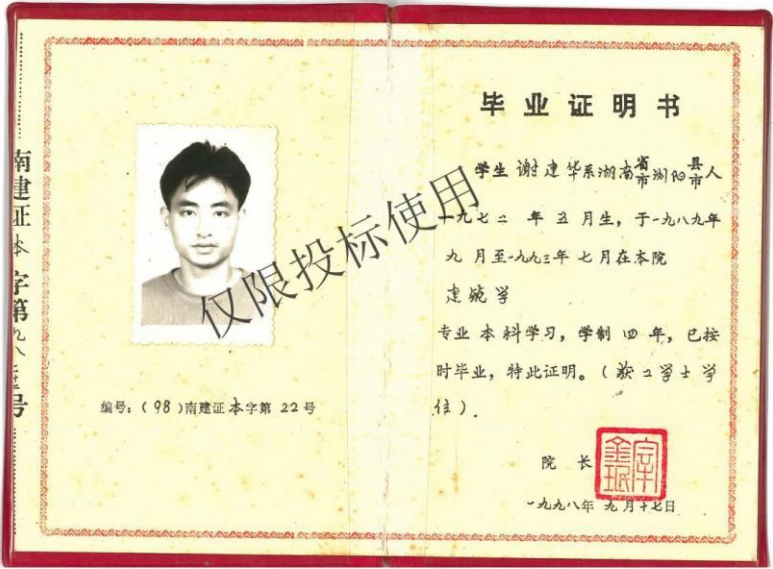 南建证本字第九八二二号
编号:(98)南建证本字第 22 号
仅限投标使用
毕业证明书
学生谢建华系湖南省市浏阳县市人
一九七二年五月生,于一九八九年
九月至一九九三年七月在本院
建筑学
专业本科学习,学制四年,已按
时毕业,特此证明。(获工学士学
位).
院长
一九九八年九月十七日